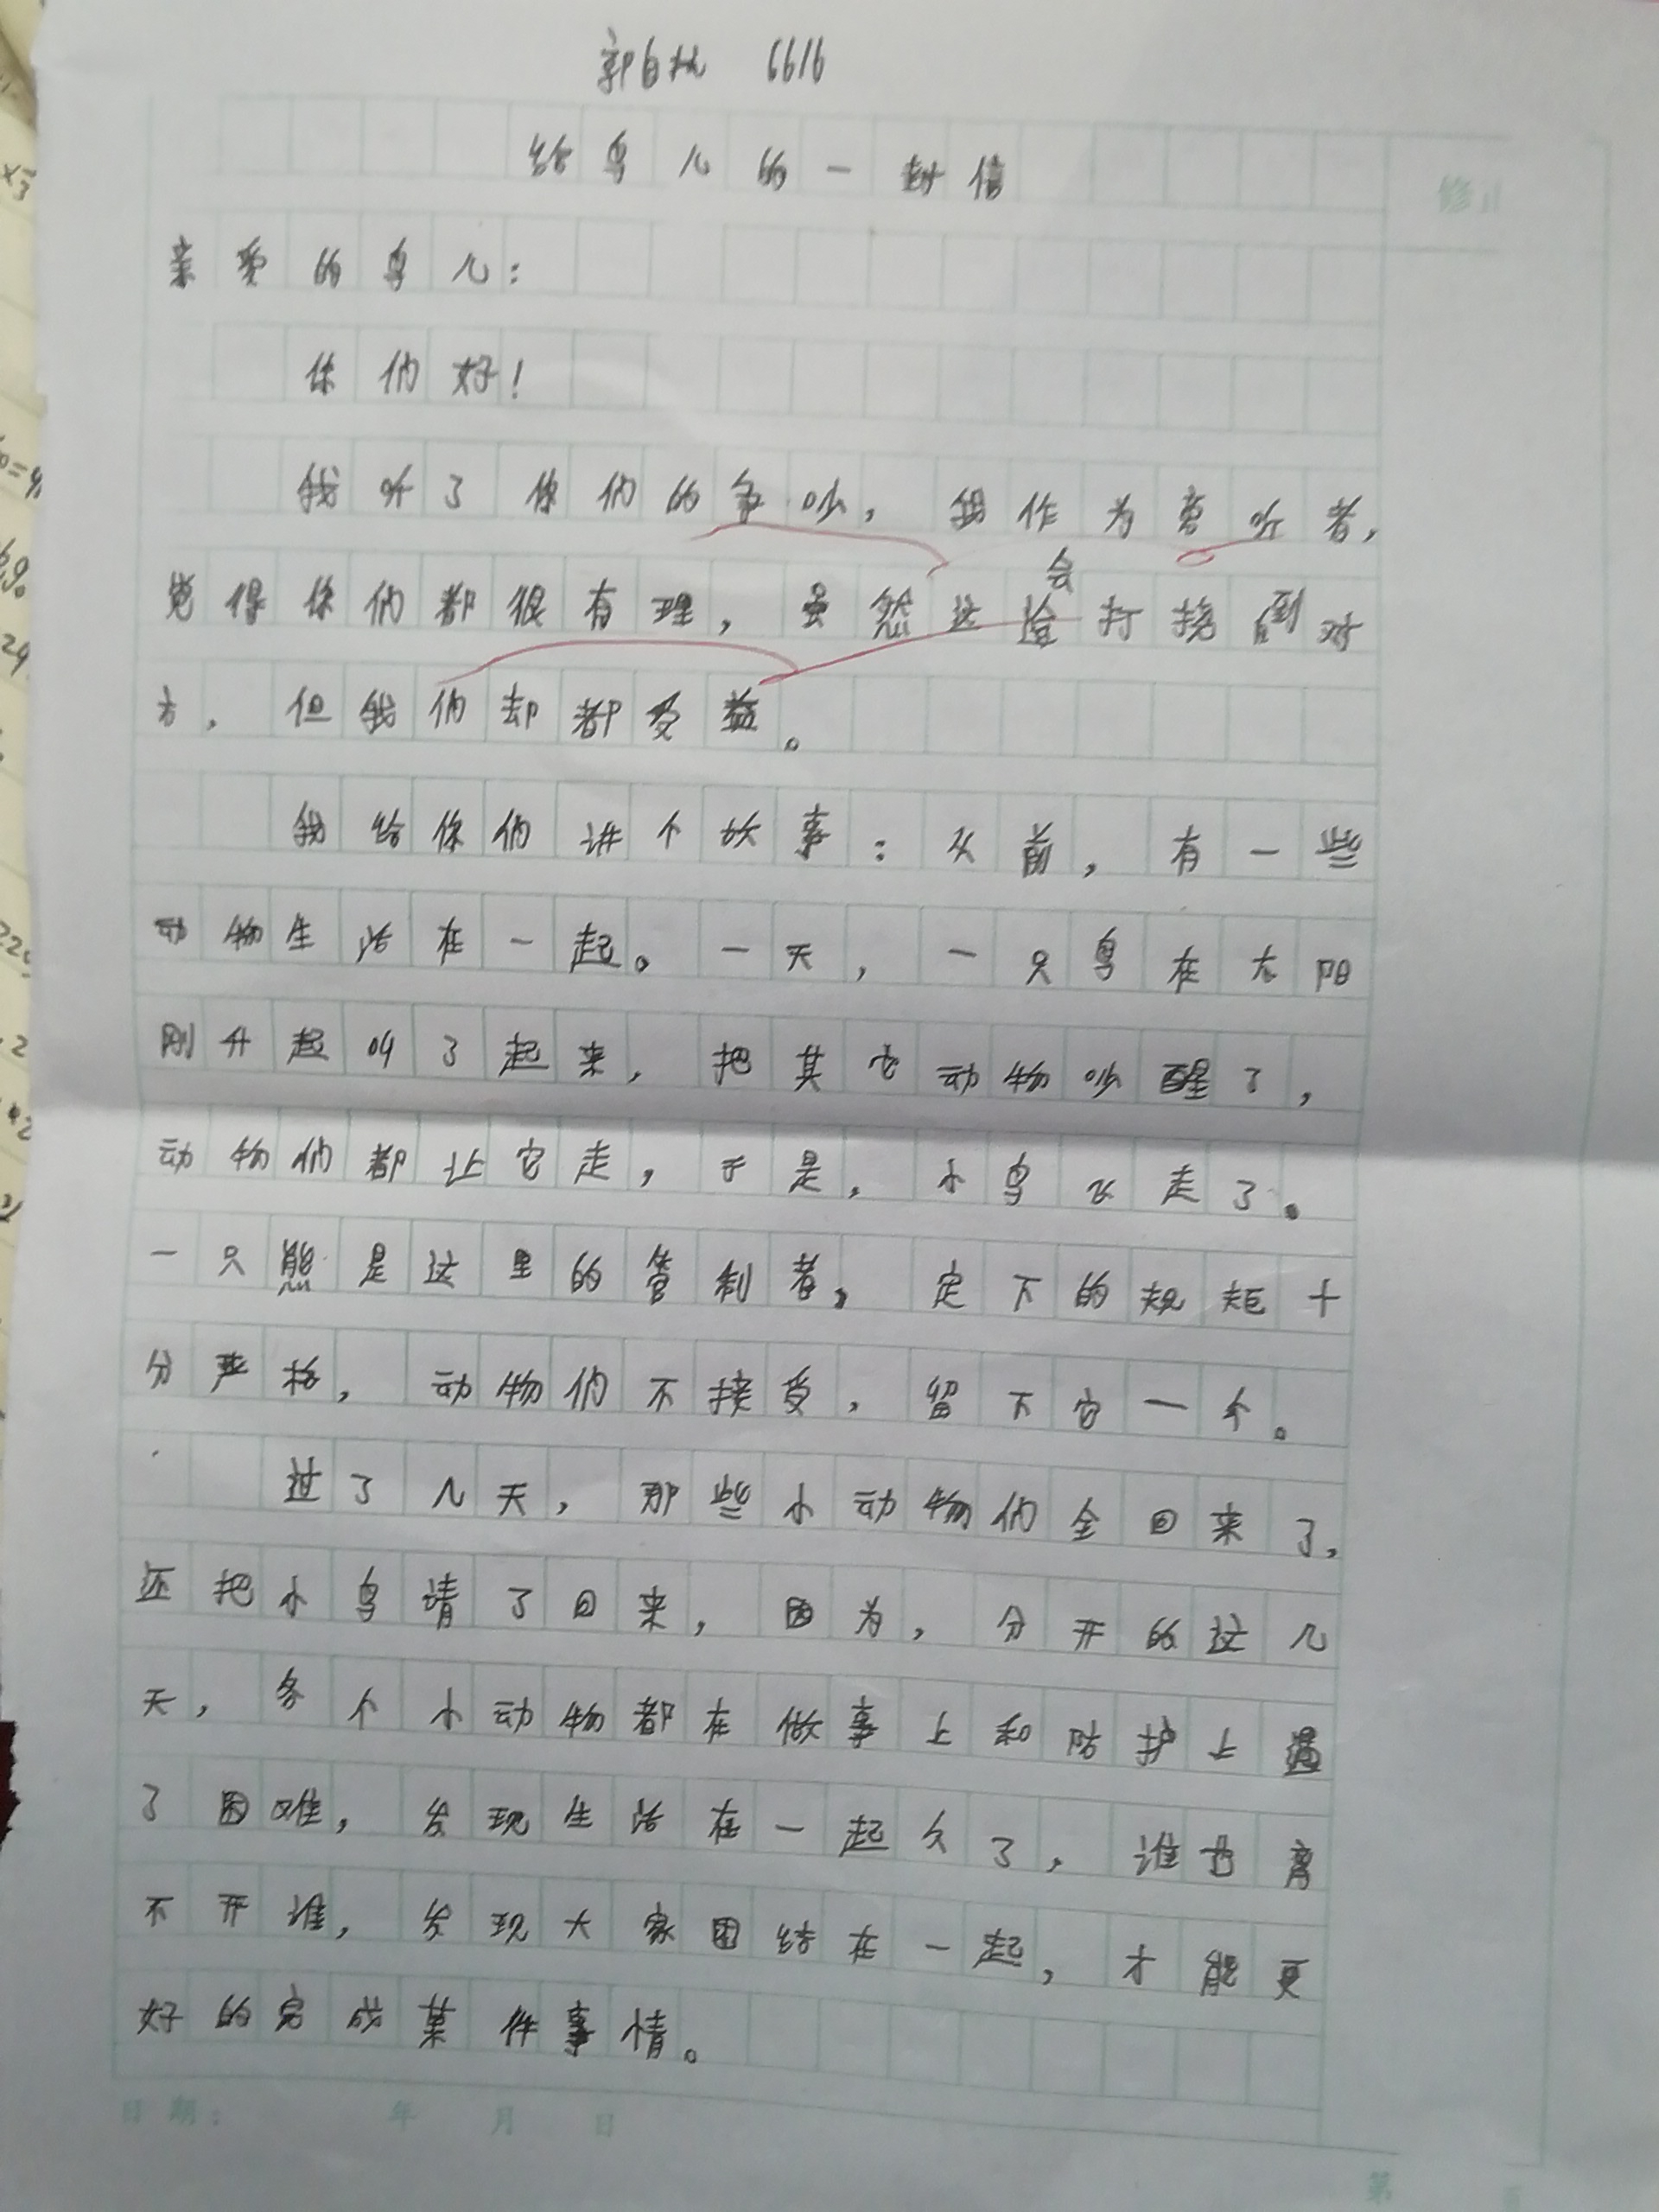 6616
给鸟儿的一封信
亲爱的鸟儿：
你们好！
我听了你们的争吵，我作为旁听者，
会
觉得你们都很有理，虽然这打挠到对
方，但我们却都受益。
我给你们讲个故事：从前，有一些
动物生活在一起。一天，一只鸟在太阳
刚升起叫了起来，把其它动物吵醒了，
动物们都让它走，于是，小鸟飞走了。
一只熊是这里的管制者，定下的规矩十
分严格，动物们不接受，留下它一个。
过了几天，那些小动物们全回来了，
还把小鸟请了回来，因为，分开的这几
天，各个小动物都在做事上和防护上遇
了困难，发现生活在一起久了，谁也离
不开谁，发现大家团结在一起，才能更
好的完成某件事情。
日期： 年 月 日
第